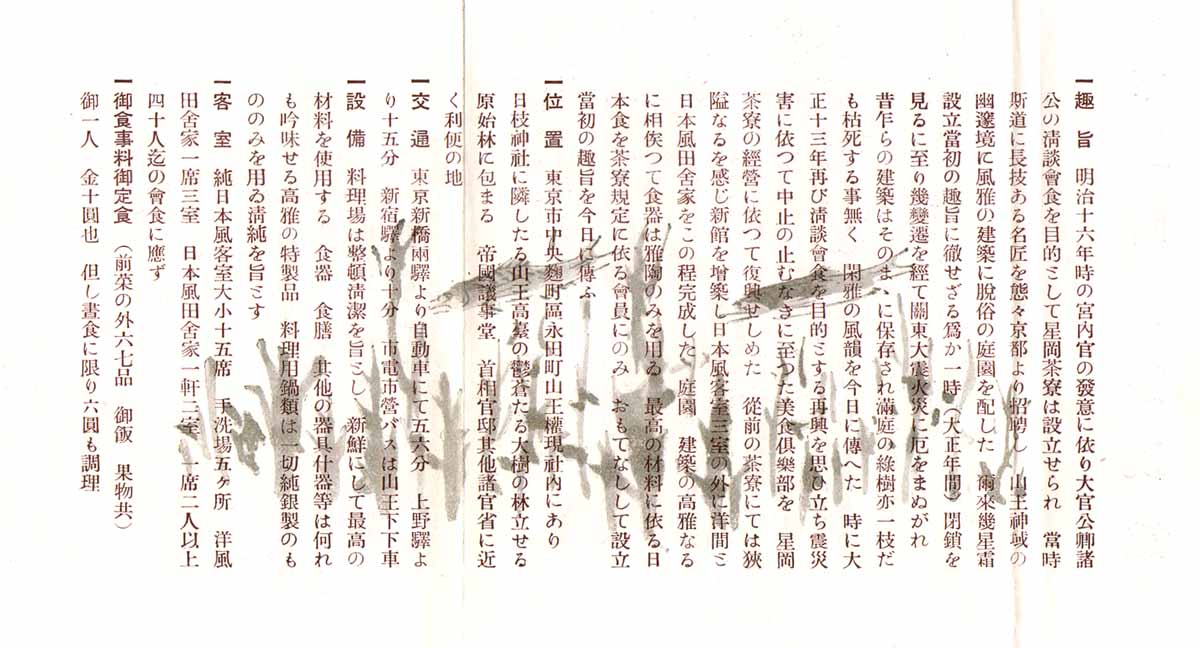 一 趣 旨 明治十六年時の宮內官の發意に依り大官公卿諸
公の淸談會食を目的として星岡茶寮は設立せられ 當時
斯道に長技ある名匠を態々京都より招聘し 山王神域の
幽邃境に風雅の建築に脫俗の庭園を配した 爾來幾星霜
設立當初の趣旨に徹せざる爲か一時(大正年間)閉鎖を
見るに至り幾變遷を經て關東大震火災に厄をまぬがれ
昔乍らの建築はそのまゝに保存され滿庭の綠樹亦一枝だ
も枯死する事無く 閑雅の風韻を今日に傳へた 時に大
正十三年再び淸談會食を目的とする再興を思ひ立ち震災
害に依つて中止の止むなきに至つた美食俱樂部を 星岡
茶寮の經營に依つて復興せしめた 從前の茶寮にては狹
隘なるを感じ新館を增築し日本風客室三室の外に洋間と
日本風田舍家をこの程完成した 庭園 建築の高雅なる
に相俟つて食器は雅陶のみを用ゐ 最高の材料に依る日
本食を茶寮規定に依る會員にのみ おもてなしして設立
當初の趣旨を今日に傳ふ
一 位 置 東京市中央麴町區永田町山王權現社內にあり
日枝神社に隣したる山王高臺の鬱蒼たる大樹の林立せる
原始林に包まる 帝國議事堂 首相官邸其他諸官省に近
く利便の地
一 交 通 東京新橋兩驛より自動車にて五六分 上野驛よ
り十五分 新宿驛より十分 市電市營バスは山王下下車
一 設 備 料理場は整頓淸潔を旨とし 新鮮にして最高の
材料を使用する 食器 食膳 其他の器具什器等は何れ
も吟味せる高雅の特製品 料理用鍋類は一切純銀製のも
ののみを用ゐ淸純を旨とす
一 客 室 純日本風客室大小十五席 手洗場五ヶ所 洋風
田舍家一席三室 日本風田舍家一軒二室 一席二人以上
四十人迄の會食に應ず
一 御食事料御定食 (前菜の外六七品 御飯 果物共)
御一人 金十圓也 但し晝食に限り六圓も調理